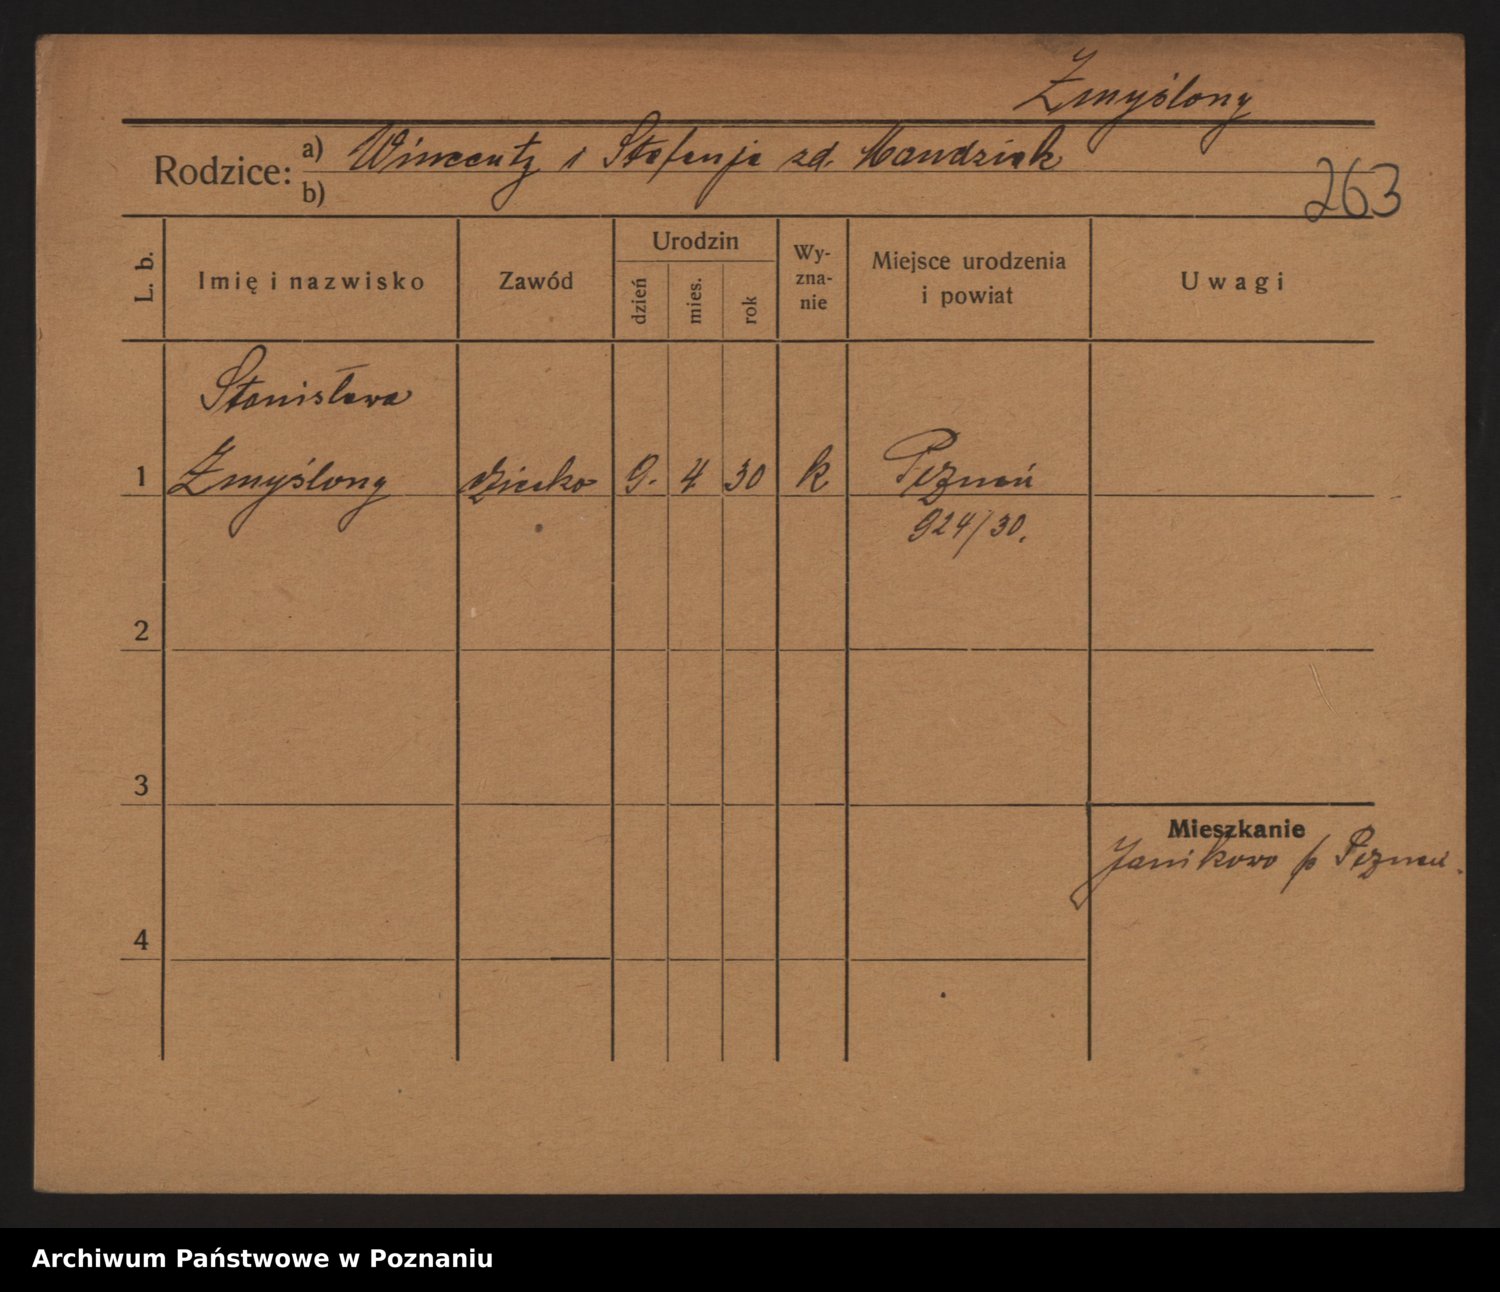 Zmyślony
Rodzice: a) Wincenty i Stefanja zd. Mandziak
b)
263
L. b.
Imię i nazwisko
Zawód
Urodzin
dzień
mies.
rok
Wy-
zna-
nie
Miejsce urodzenia
i powiat
Uwagi
Stanisława
1 Zmyślony dziecko 9. 4 30 k Poznań
924/30.
2
3
Mieszkanie
Janikowo p Poznań.
4
Archiwum Państwowe w Poznaniu